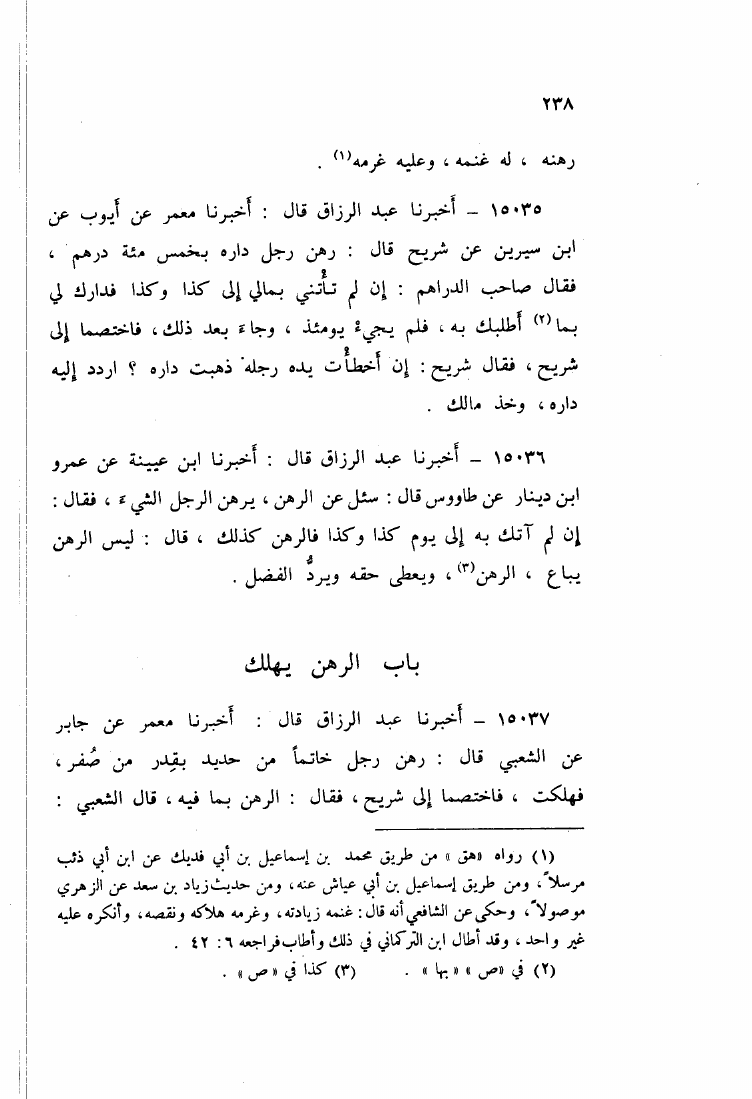 ٢٣٨
رهنه ، له غنمه ، وعليه غرمه(١) .
١٥٠٣٥ – أخبرنا عبد الرزاق قال : أخبرنا معمر عن أيوب عن
ابن سيرين عن شريح قال : رهن رجل داره بخمس مئة درهم ،
فقال صاحب الدراهم : إن لم تأْتني بمالي إلى كذا وكذا فدارك لي
بما(٢) أطلبك به ، فلم يجيءْ يومئذ ، وجاءَ بعد ذلك ، فاختصما إلى
شريح ، فقال شريح : إن أخطأَت يده رجله ذهبت داره ؟ اردد إليه
داره ، وخذ مالك .
١٥٠٣٦ – أخبرنا عبد الرزاق قال : أخبرنا ابن عيينة عن عمرو
ابن دينار عن طاووس قال : سئل عن الرهن ، يرهن الرجل الشيءَ ، فقال :
إن لم آتك به إلى يوم كذا وكذا فالرهن كذلك ، قال : ليس الرهن
يباع ، الرهن(٣) ، ويعطى حقه ويردُّ الفضل .
باب الرهن يهلك
١٥٠٣٧ – أخبرنا عبد الرزاق قال : أخبرنا معمر عن جابر
عن الشعبي قال : رهن رجل خاتماً من حديد بقِدر من صُفر ،
فهلكت ، فاختصما إلى شريح ، فقال : الرهن بما فيه ، قال الشعبي :
(١) رواه «هق» من طريق محمد بن إسماعيل بن أبي فديك عن ابن أبي ذئب
مرسلاً ، ومن طريق إسماعيل بن أبي عياش عنه ، ومن حديث زياد بن سعد عن الزهري
موصولاً ، وحكى عن الشافعي أنه قال : غنمه زيادته ، وغرمه هلاكه ونقصه ، وأنكره عليه
غير واحد ، وقد أطال ابن التركماني في ذلك وأطاب فراجعه ٦ : ٤٢ .
(٢) في «ص» «بها» . (٣) كذا في «ص» .